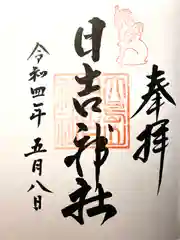 奉拝
日吉神社
令和四年
五月八日